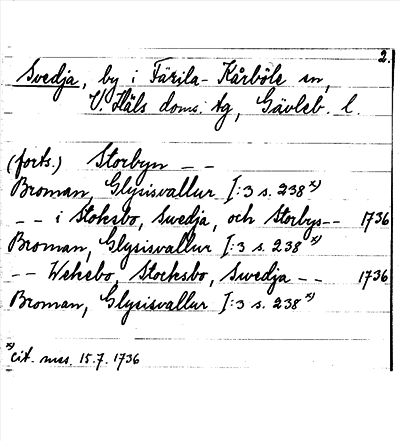 2.
Svedja, by i Färila-Kårböle sn,
V. Häls doms. tg, Gävleb. l.
(forts.) Storbyn - -
Broman, Glysisvallur I:3 s. 238 x)
- - i Stoksbo, Swedja, och Storbys - - 1736
Broman, Glysisvallur I:3 s. 238 x)
- - Wekebo, Stocksbo, Swedja - - 1736
Broman, Glysisvallur I:3 s. 238 x)
x) cit. mss. 15.7. 1736